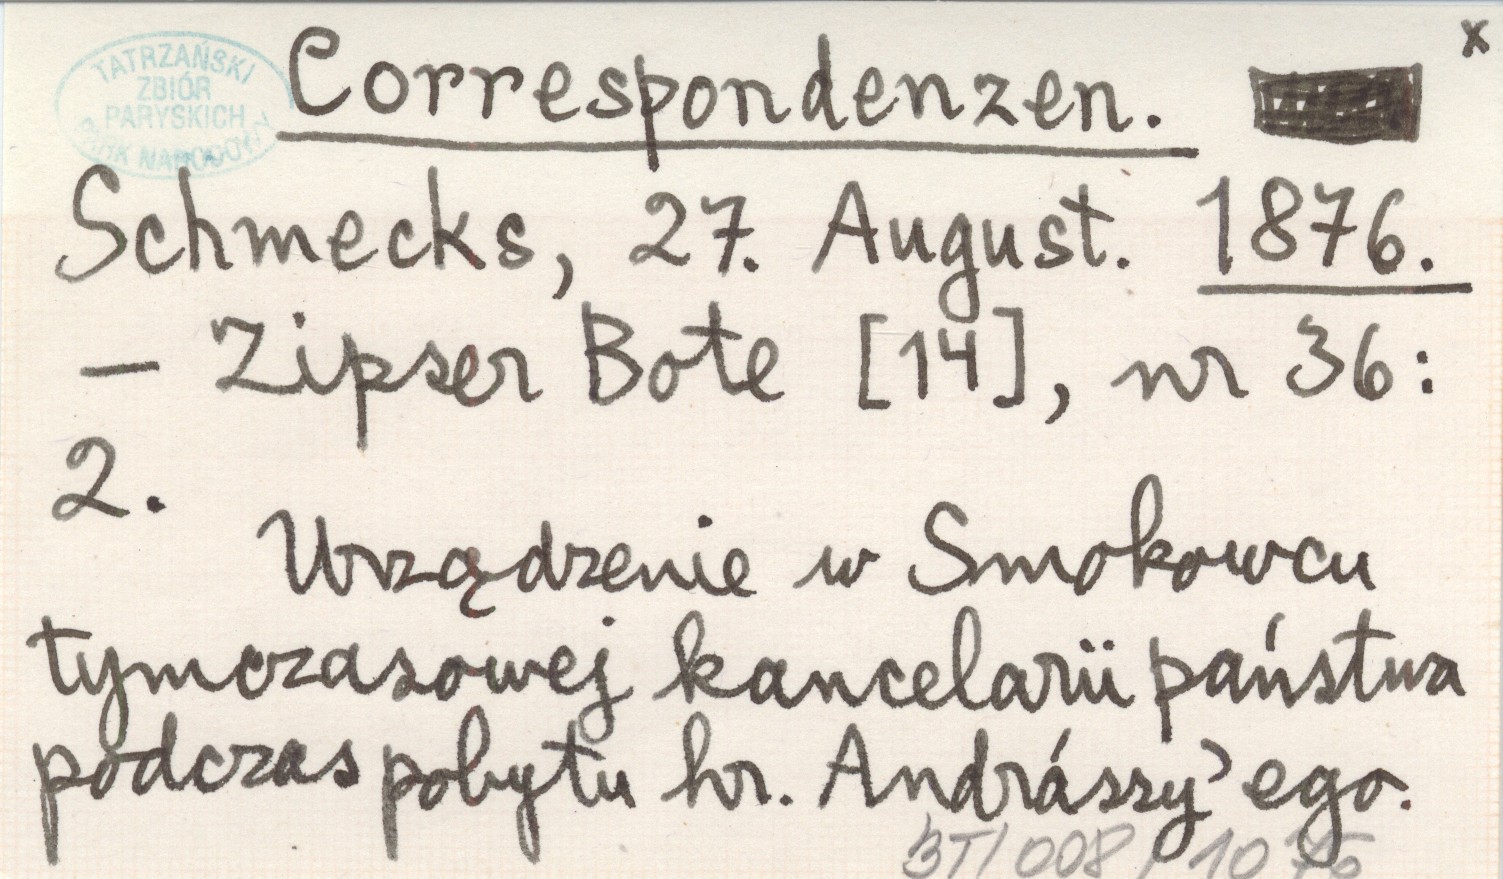 x
TATRZAŃSKI
ZBIÓR
PARYSKICH
PARK NARODOWY
Correspondenzen.
Schmecks, 27. August. 1876.
— Zipser Bote [14], nr 36:
2.
Urządzenie w Smokowcu
tymczasowej kancelarii państwa
podczas pobytu hr. Andrássy'ego.
BT/008/1076